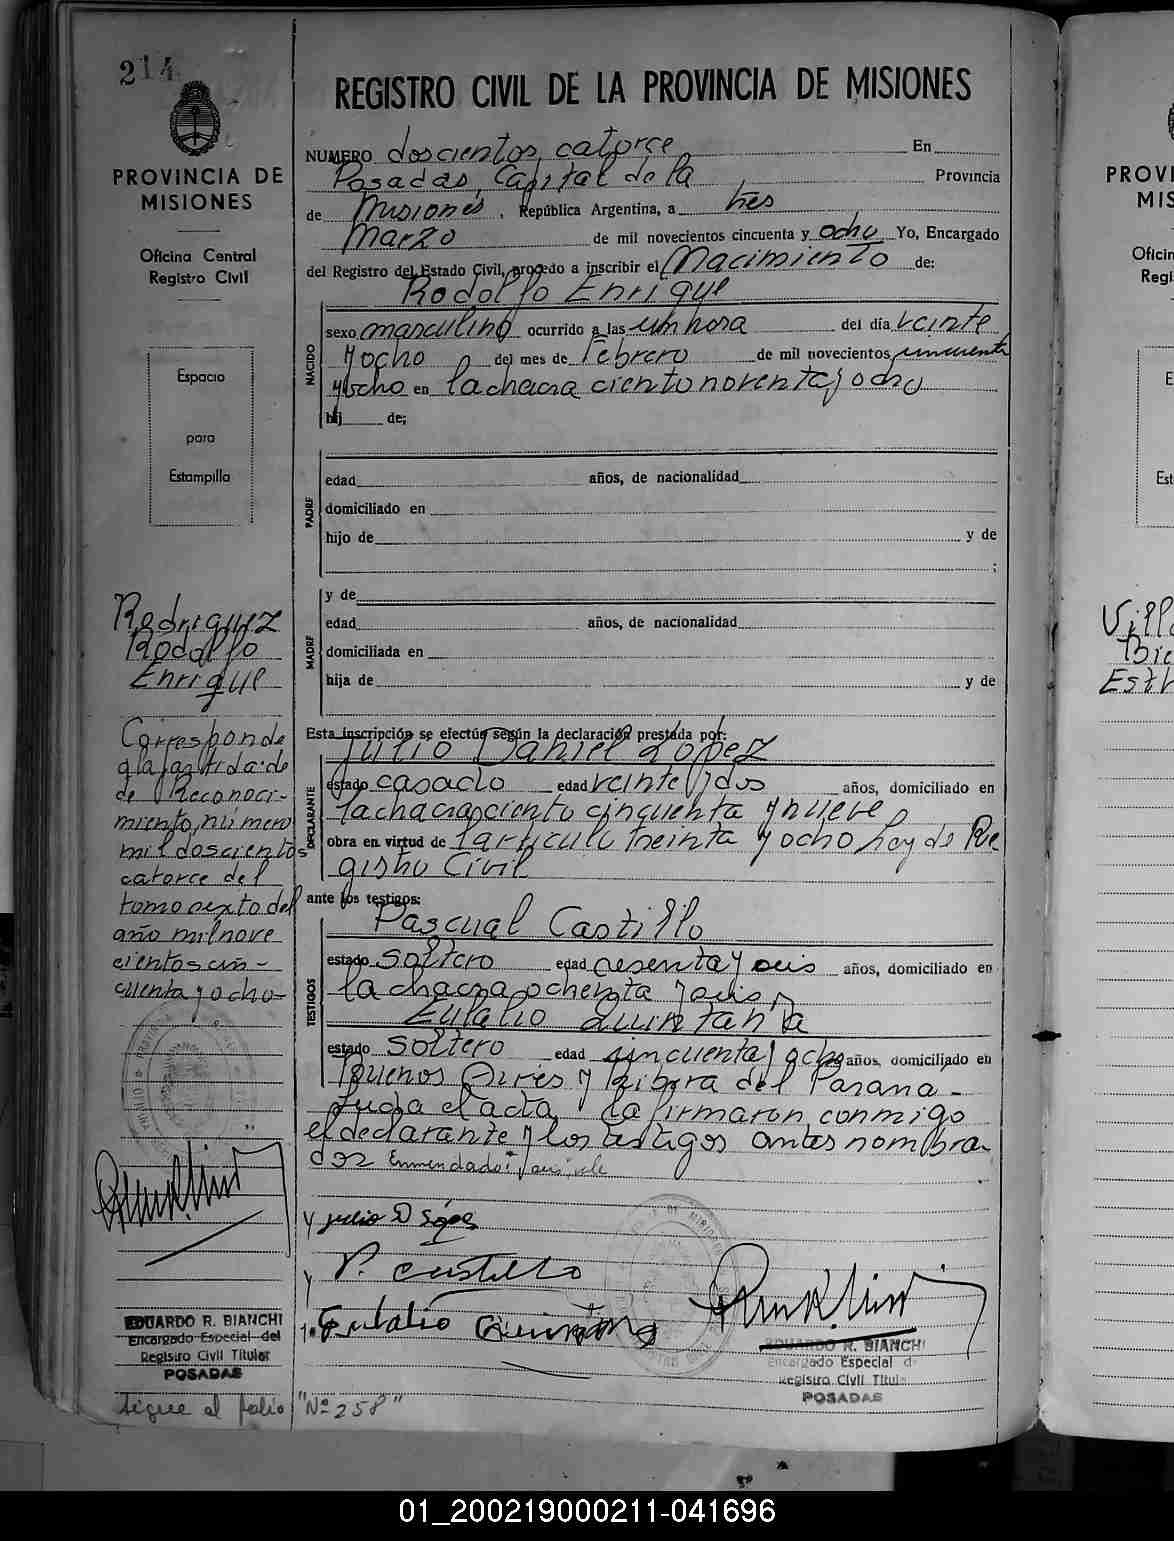 214
PROVINCIA DE
MISIONES
Oficina Central
Registro Civil
Espacio
para
Estampilla
Rodriguez
Rodolfo
Enrique
Corresponde
a la partida de
de Reconoci-
miento, número
mil doscientos
catorce del
tomo sexto del
año mil nove
cientos cin-
cuenta y ocho-
EDUARDO R. BIANCHI
Encargado Especial del
Registro Civil Titular
POSADAS
sigue al folio "Nº 258"
REGISTRO CIVIL DE LA PROVINCIA DE MISIONES
NUMERO doscientos catorce En
Posadas, Capital de la Provincia
de Misiones, República Argentina, a tres
Marzo de mil novecientos cincuenta y ocho Yo, Encargado
del Registro del Estado Civil, procedo a inscribir el Nacimiento de:
Rodolfo Enrique
NACIDO
sexo masculino ocurrido a las un hora del día veinte
y ocho del mes de Febrero de mil novecientos cincuenta
y ocho en la chacra ciento noventa y ocho
hij de;
PADRE
edad años, de nacionalidad
domiciliado en
hijo de y de
;
MADRE
y de
edad años, de nacionalidad
domiciliada en
hija de y de
Esta inscripción se efectúa según la declaración prestada por:
DECLARANTE
Julio Daniel Lopez
estado casado edad veinte y dos años, domiciliado en
la chacra ciento cincuenta y nueve
obra en virtud de l articulo treinta y ocho ley de Re
gistro Civil
ante los testigos:
TESTIGOS
Pascual Castillo
estado soltero edad sesenta y seis años, domiciliado en
la chacra ochenta y seis y
Eulalio Quintana
estado soltero edad cincuenta y ocho años, domiciliado en
Buenos Aires y Ribera del Parana-
Leida el acta la firmaron conmigo
el declarante y los testigos antes nombra-
dos Enmendado: seis, vale
Julio D López
P. Castillo
Eulalio Quintana
EDUARDO R. BIANCHI
Encargado Especial d
Registro Civil Titul
POSADAS
PROVI
MIS
Oficin
Regi
E
Est
Villa
Bie
Esth
01_200219000211-041696